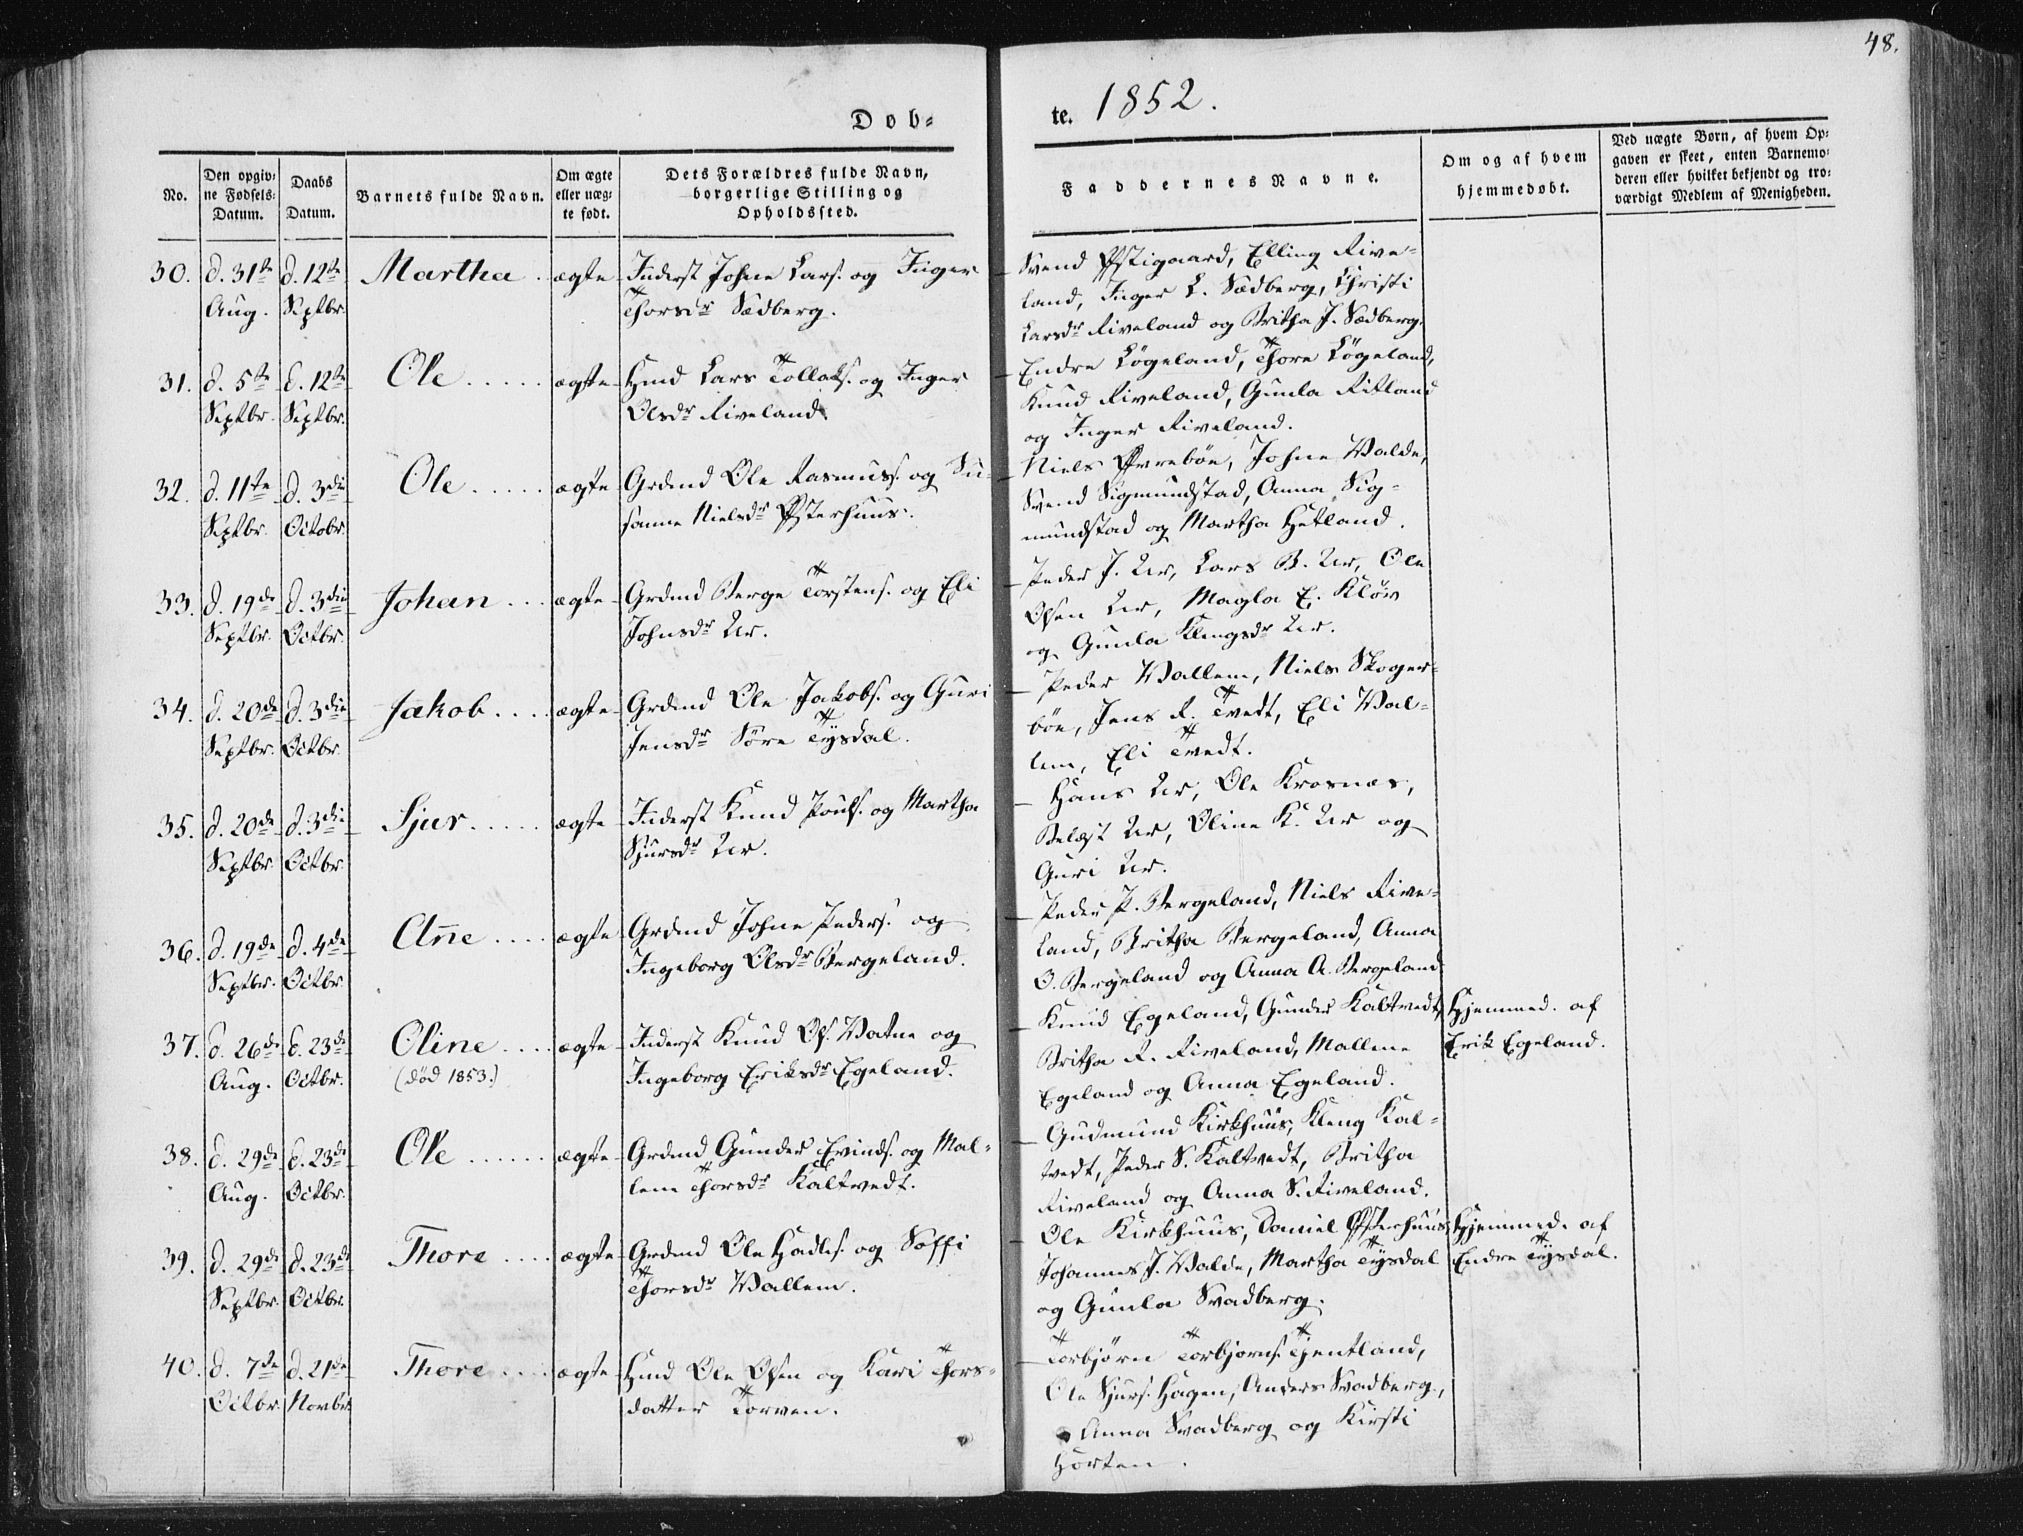 48.
Døb-
te. 1852.
No.
Den opgiv-
ne Fødsels-
Datum.
Daabs
Datum.
Barnets fulde Navn.
Om ægte
eller uæg-
te født.
Dets Forældres fulde Navn,
borgerlige Stilling og
Opholdssted.
Faddernes Navne.
Om og af hvem
hjemmedøbt.
Ved uægte Børn, af hvem Op-
gaven er skeet, enten Barnemo-
deren eller hvilket bekjendt og tro-
værdigt Medlem af Menigheden.
30. d. 31te Aug. d. 12te Septbr. Martha. ægte
Inderst Johne Lars. og Inger
Thorsdr Sædberg.
Svend Østigaard, Elling Rive-
land, Inger L. Sædberg, Christi
Larsdr Riveland og Britha J. Sædberg.
31. d. 5te Septbr. d. 12te Septbr. Ole ..... ægte
Hmd Lars Tollaks. og Inger
Olsdr Riveland.
Endre Løgeland, Thore Løgeland,
Knud Riveland, Gunla Ritland
og Inger Riveland.
32. d. 11te Septbr. d. 3die Octobr. Ole ..... ægte
Grdmd Ole Rasmuss. og Su-
sanne Nielsdr Østerhuus.
Niels Øvrebøe, Johne Valde,
Svend Sigmundstad, Anna Sig-
mundstad og Martha Hetland.
33. d. 19de Septbr. d. 3die Octbr. Johan ... ægte
Grdmd Berge Torstens. og Eli
Johnsdr Ur.
Peder J. Ur, Lars B. Ur, Ole
Olsen Ur, Magla E. Kløv
og Gunla Klengsdr Ur.
34. d. 20de Septbr. d. 3die Octbr. Jakob .... ægte
Grdmd Ole Jakobs. og Guri
Jensdr Søre Tysdal.
Peder Vallem, Niels Skoger-
bøe, Jens R. Tvedt, Eli Val-
lem, Eli Tvedt.
35. d. 20de Septbr. d. 3die Octbr. Sjur ..... ægte
Inderst Knud Pouls. og Martha
Sjursdr Ur.
Hans Ur, Ole Krosnæs,
Ur, Oline K. Ur og
Guri Ur.
36. d. 19de Septbr. d. 4de Octbr. Añe .... ægte
Grdmd Johne Peders. og
Ingeborg Olsdr Bergeland.
Peder P. Bergeland, Niels Rive-
land, Britha Bergeland, Anna
O. Bergeland og Anna A. Bergeland
37. d. 26de Aug. d. 23de Octbr. Oline .... ægte
(død 1853.)
Inderst Knud Ols. Vatne og
Ingeborg Eriksdr Egeland.
Knud Egeland, Gunder Kaltvedt,
Britha R. Riveland, Mallene
Egeland og Anna Egeland.
Hjemmed. af
Erik Egeland.
38. d. 29de Aug. d. 23de Octbr. Ole ...... ægte
Grdmd Gunder Evinds. og Mal-
lene Thorsdr Kaltvedt.
Gudmund Kirkhuus, Kleng Kal-
tvedt, Peder S. Kaltvedt, Britha
Riveland og Anna S. Riveland.
39. d. 29de Septbr. d. 23de Octbr. Thore .... ægte
Grdmd Ole Hadles. og Soffi
Thorsdr Vallem.
Ole Kirkhuus, Daniel Østerhuus
Johannes J. Valde, Martha Tysdal
og Gunla Svadberg.
Hjemmed. af
Endre Tysdal.
40. d. 7de Octbr. d. 21de Novbr. Thore .... ægte
Hmd Ole Olsen og Kari Thors-
datter Torven.
Torbjørn Torbjørns. Tjentland,
Ole Sjurs. Hagen, Anders Svadberg,
Anna Svadberg og Kirsti
Horten.